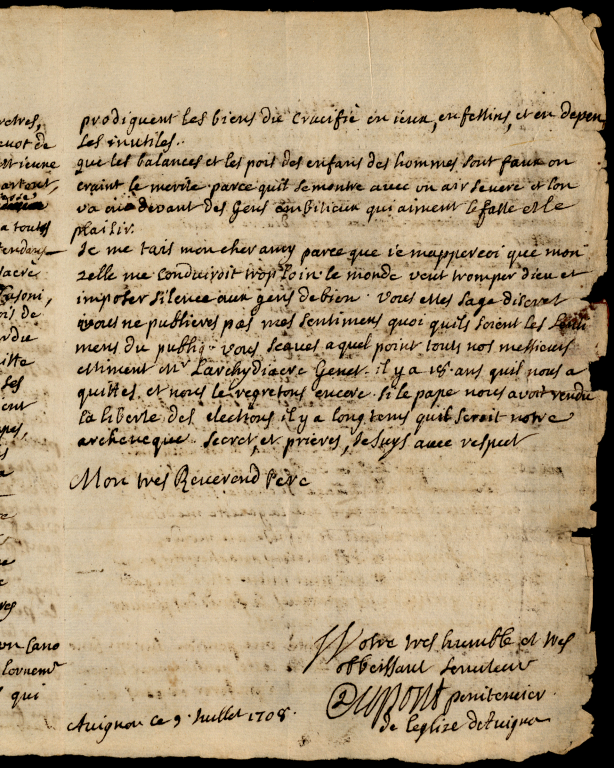 prodiguent les biens du crucifié en ieux, en festins, et en depen
ses inutiles.
que les balances et les pois des enfans des hommes sont faux on
craint le merite parce quil se montre avec un air severe et lon
va au devant des gens ambitieux qui aiment le faste et le
plaisir.
Je me tais mon cher amy parce que ie mappercoi que mon
zelle me conduiroit trop loin. le monde veut tromper dieu et
imposer silence aux gens de bien. vous estes sage discret
vous ne publieres pas mes sentimens quoi quils soient les senti
mens du public. vous scaves a quel point touts nos messieurs
estiment mr. Larchydiacre Genet. il y a 18. ans quil nous a
quittes, et nous le regretons encore. si le pape nous avoit rendu
la liberte des elections il y a long tems quil seroit notre
archeveque. secret, et prieres, Je suys avec respect
Mon tres Reverend Pere
Votre tres humble et tres
obbeissant serviteur
Dupont penitencier
de leglize dAvignon
Avignon ce 9. Juillet 1708.
retres,
artout,
a touts
tendans
sacre
Lusoni,
ois de
ses
on Cano
lornemt
qui